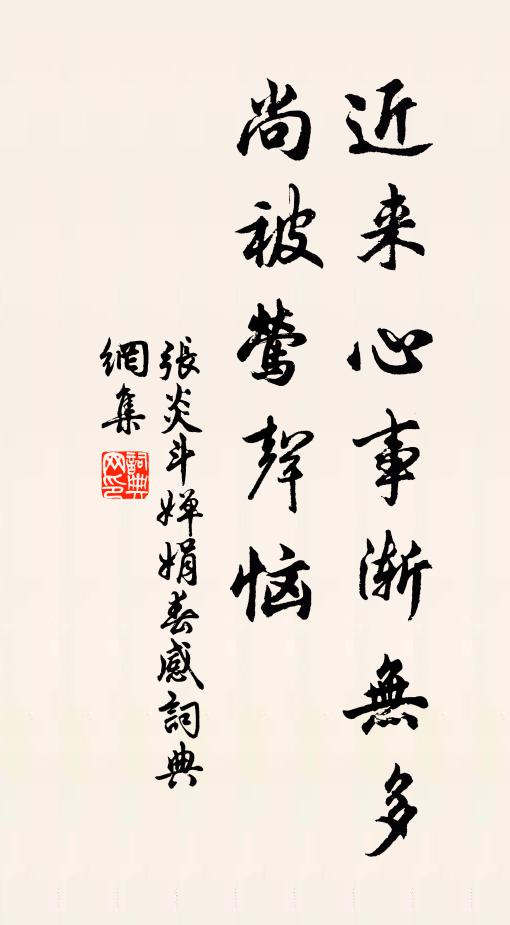 近来心事渐無多
尚被莺聲恼
張炎斗婵娟春感詞典
網集
詞典网印